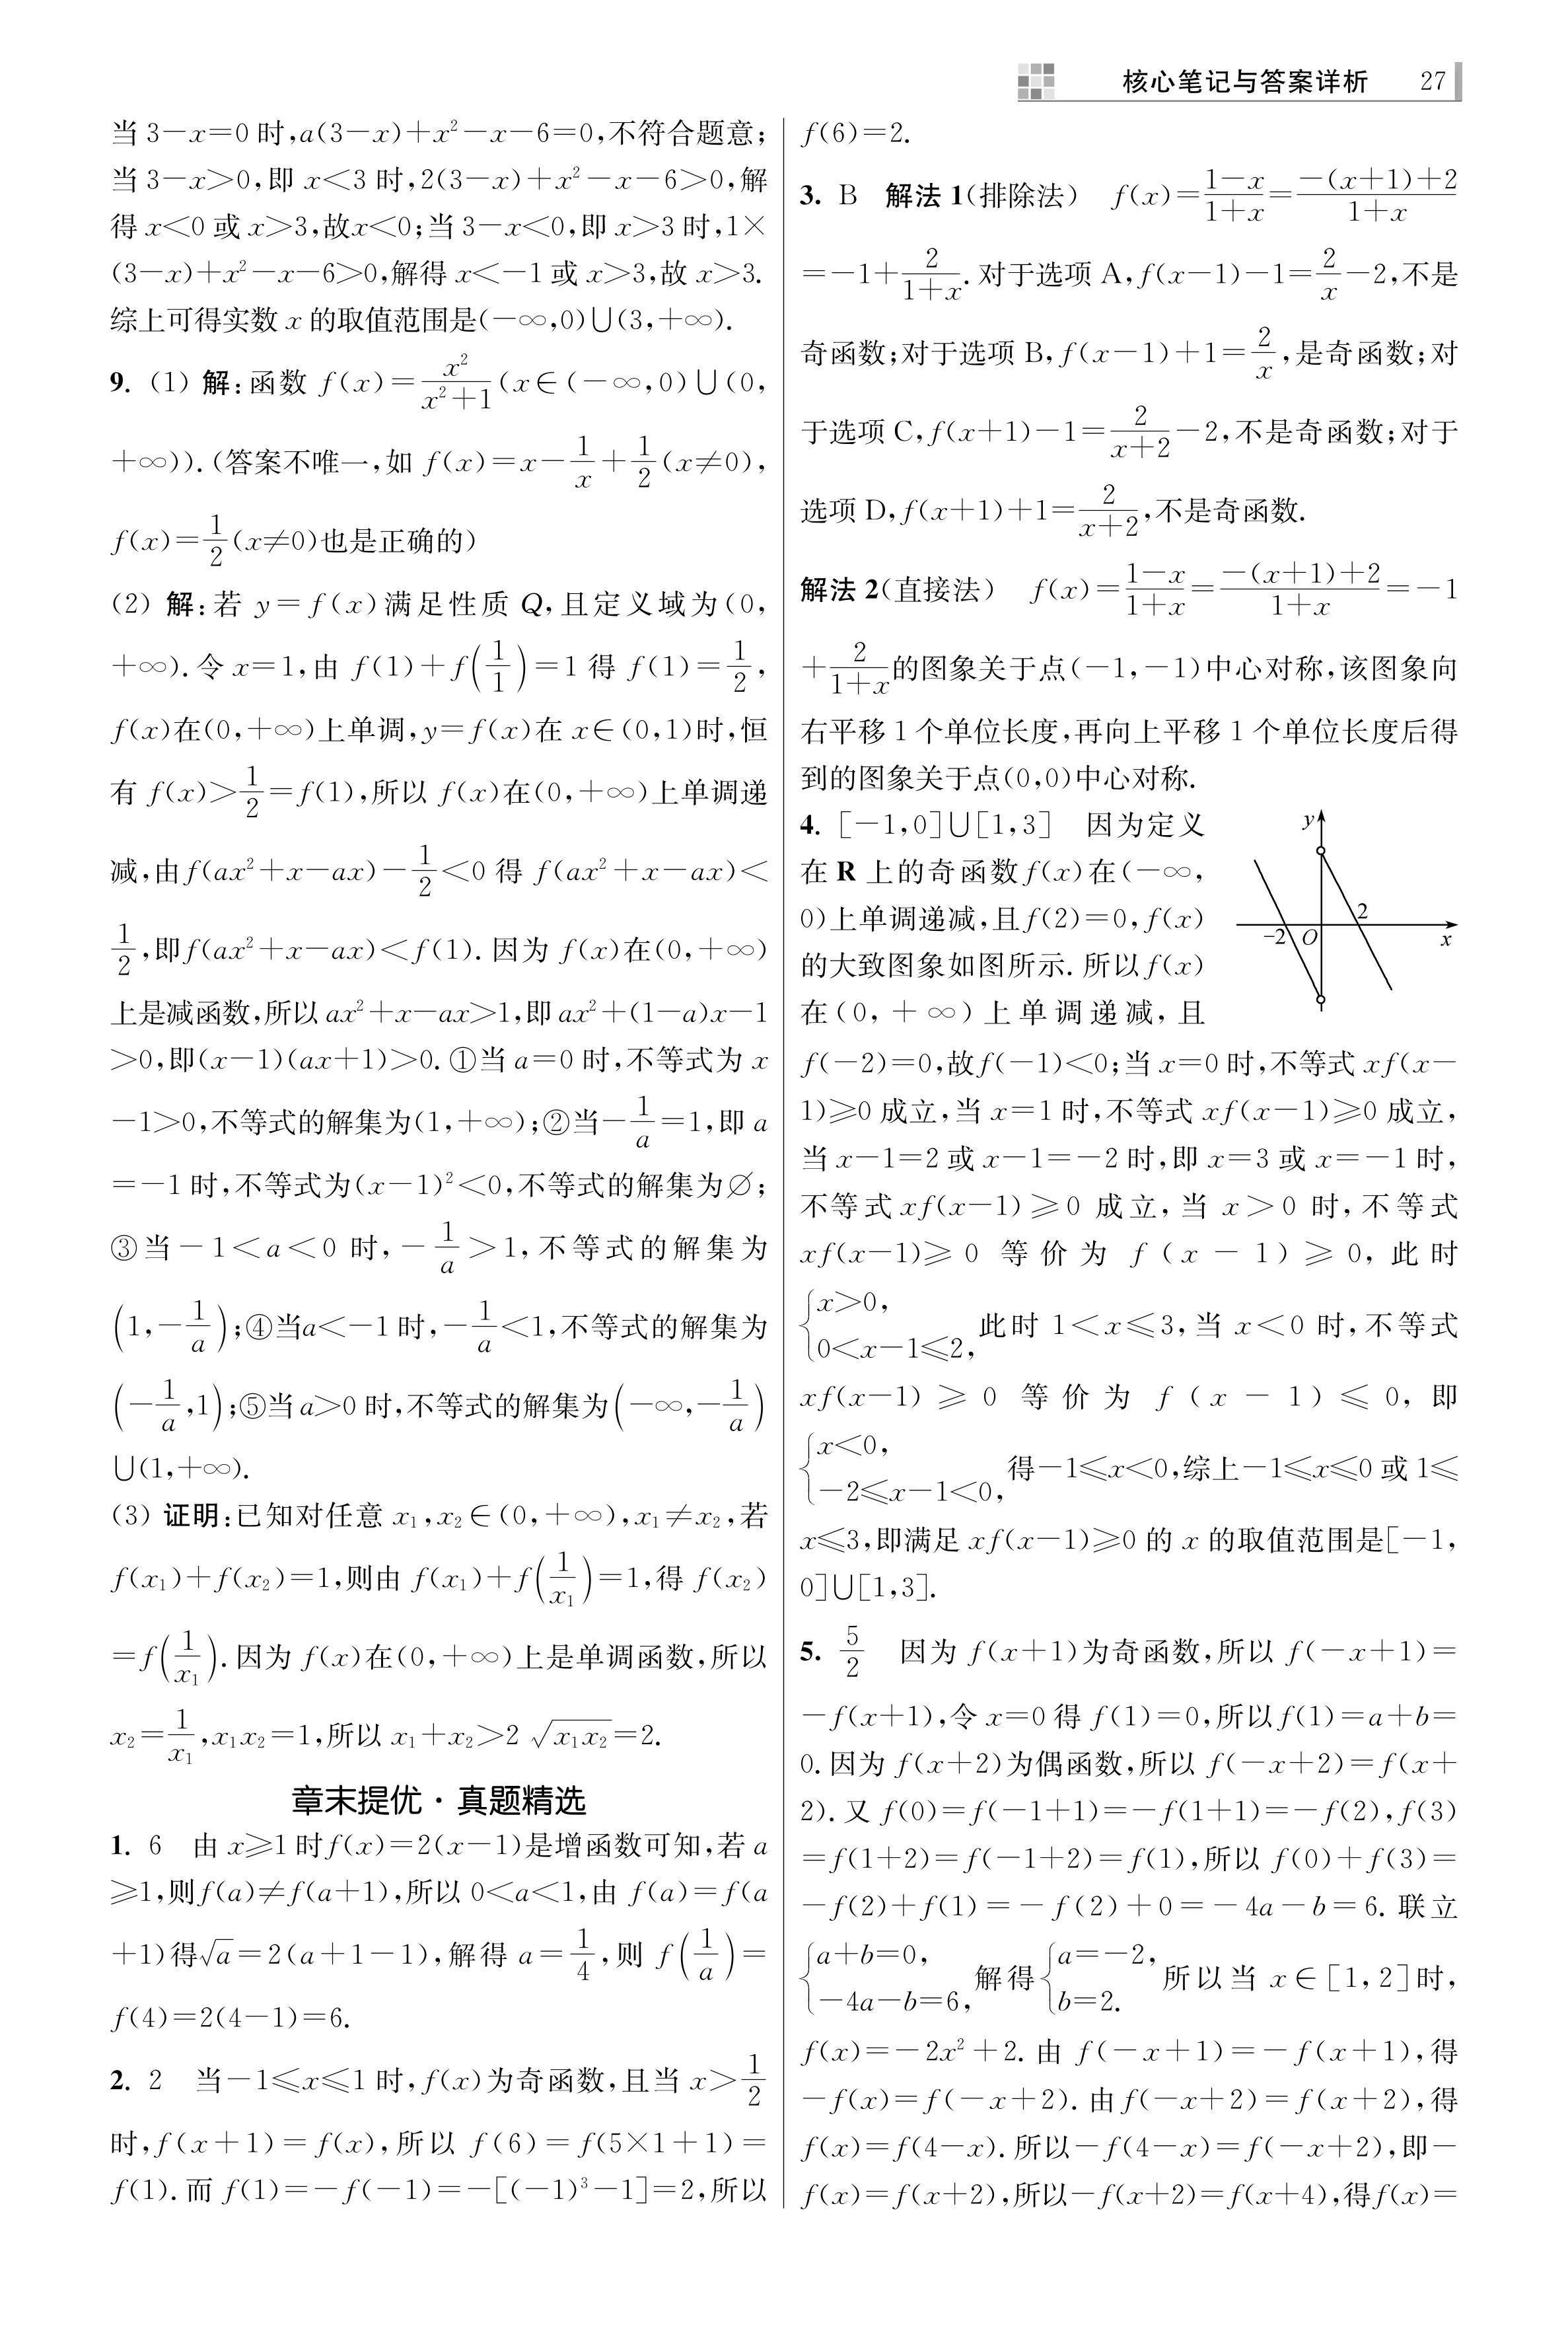 核心笔记与答案详析 27
当3-x=0时,a(3-x)+x²-x-6=0,不符合题意;
当3-x>0,即x<3时,2(3-x)+x²-x-6>0,解
得x<0或x>3,故x<0;当3-x<0,即x>3时,1×
(3-x)+x²-x-6>0,解得x<-1或x>3,故x>3.
综上可得实数x的取值范围是(-∞,0)∪(3,+∞).
9. (1) 解:函数 f(x)=x²/(x²+1)(x∈(-∞,0)∪(0,
+∞)).(答案不唯一,如 f(x)=x-1/x+1/2(x≠0),
f(x)=1/2(x≠0)也是正确的)
(2) 解:若 y=f(x)满足性质 Q,且定义域为(0,
+∞).令x=1,由 f(1)+f(1/1)=1 得 f(1)=1/2,
f(x)在(0,+∞)上单调,y=f(x)在x∈(0,1)时,恒
有 f(x)>1/2=f(1),所以 f(x)在(0,+∞)上单调递
减,由f(ax²+x-ax)-1/2<0 得 f(ax²+x-ax)<
1/2,即f(ax²+x-ax)<f(1).因为 f(x)在(0,+∞)
上是减函数,所以ax²+x-ax>1,即ax²+(1-a)x-1
>0,即(x-1)(ax+1)>0.①当a=0时,不等式为x
-1>0,不等式的解集为(1,+∞);②当-1/a=1,即a
=-1时,不等式为(x-1)²<0,不等式的解集为∅;
③当-1<a<0 时,-1/a>1,不等式的解集为
(1,-1/a);④当a<-1时,-1/a<1,不等式的解集为
(-1/a,1);⑤当a>0时,不等式的解集为(-∞,-1/a)
∪(1,+∞).
(3) 证明:已知对任意 x₁,x₂∈(0,+∞),x₁≠x₂,若
f(x₁)+f(x₂)=1,则由 f(x₁)+f(1/x₁)=1,得 f(x₂)
=f(1/x₁).因为 f(x)在(0,+∞)上是单调函数,所以
x₂=1/x₁,x₁x₂=1,所以 x₁+x₂>2√(x₁x₂)=2.
章末提优·真题精选
1. 6 由x≥1时f(x)=2(x-1)是增函数可知,若a
≥1,则f(a)≠f(a+1),所以0<a<1,由 f(a)=f(a
+1)得√a=2(a+1-1),解得 a=1/4,则 f(1/a)=
f(4)=2(4-1)=6.
2. 2 当-1≤x≤1时,f(x)为奇函数,且当x>1/2
时,f(x+1)=f(x),所以 f(6)=f(5×1+1)=
f(1).而 f(1)=-f(-1)=-[(-1)³-1]=2,所以
f(6)=2.
3. B 解法1(排除法) f(x)=(1-x)/(1+x)=(-(x+1)+2)/(1+x)
=-1+2/(1+x).对于选项A,f(x-1)-1=2/x-2,不是
奇函数;对于选项B,f(x-1)+1=2/x,是奇函数;对
于选项C,f(x+1)-1=2/(x+2)-2,不是奇函数;对于
选项D,f(x+1)+1=2/(x+2),不是奇函数.
解法2(直接法) f(x)=(1-x)/(1+x)=(-(x+1)+2)/(1+x)=-1
+2/(1+x)的图象关于点(-1,-1)中心对称,该图象向
右平移1个单位长度,再向上平移1个单位长度后得
到的图象关于点(0,0)中心对称.
4. [-1,0]∪[1,3] 因为定义
在R上的奇函数f(x)在(-∞,
0)上单调递减,且f(2)=0,f(x)
的大致图象如图所示.所以f(x)
在(0,+∞)上单调递减,且
y
2
-2 O x
f(-2)=0,故f(-1)<0;当x=0时,不等式xf(x-
1)≥0成立,当x=1时,不等式xf(x-1)≥0成立,
当x-1=2或x-1=-2时,即x=3或x=-1时,
不等式xf(x-1)≥0成立,当x>0时,不等式
xf(x-1)≥0等价为f(x-1)≥0,此时
{x>0, 0<x-1≤2, 此时1<x≤3,当x<0时,不等式
xf(x-1)≥0等价为f(x-1)≤0,即
{x<0, -2≤x-1<0, 得-1≤x<0,综上-1≤x≤0或1≤
x≤3,即满足xf(x-1)≥0的x的取值范围是[-1,
0]∪[1,3].
5. 5/2 因为 f(x+1)为奇函数,所以 f(-x+1)=
-f(x+1),令x=0得 f(1)=0,所以f(1)=a+b=
0.因为 f(x+2)为偶函数,所以 f(-x+2)=f(x+
2).又 f(0)=f(-1+1)=-f(1+1)=-f(2),f(3)
=f(1+2)=f(-1+2)=f(1),所以 f(0)+f(3)=
-f(2)+f(1)=-f(2)+0=-4a-b=6.联立
{a+b=0, -4a-b=6, 解得{a=-2, b=2. 所以当x∈[1,2]时,
f(x)=-2x²+2.由 f(-x+1)=-f(x+1),得
-f(x)=f(-x+2).由f(-x+2)=f(x+2),得
f(x)=f(4-x).所以-f(4-x)=f(-x+2),即-
f(x)=f(x+2),所以-f(x+2)=f(x+4),得f(x)=